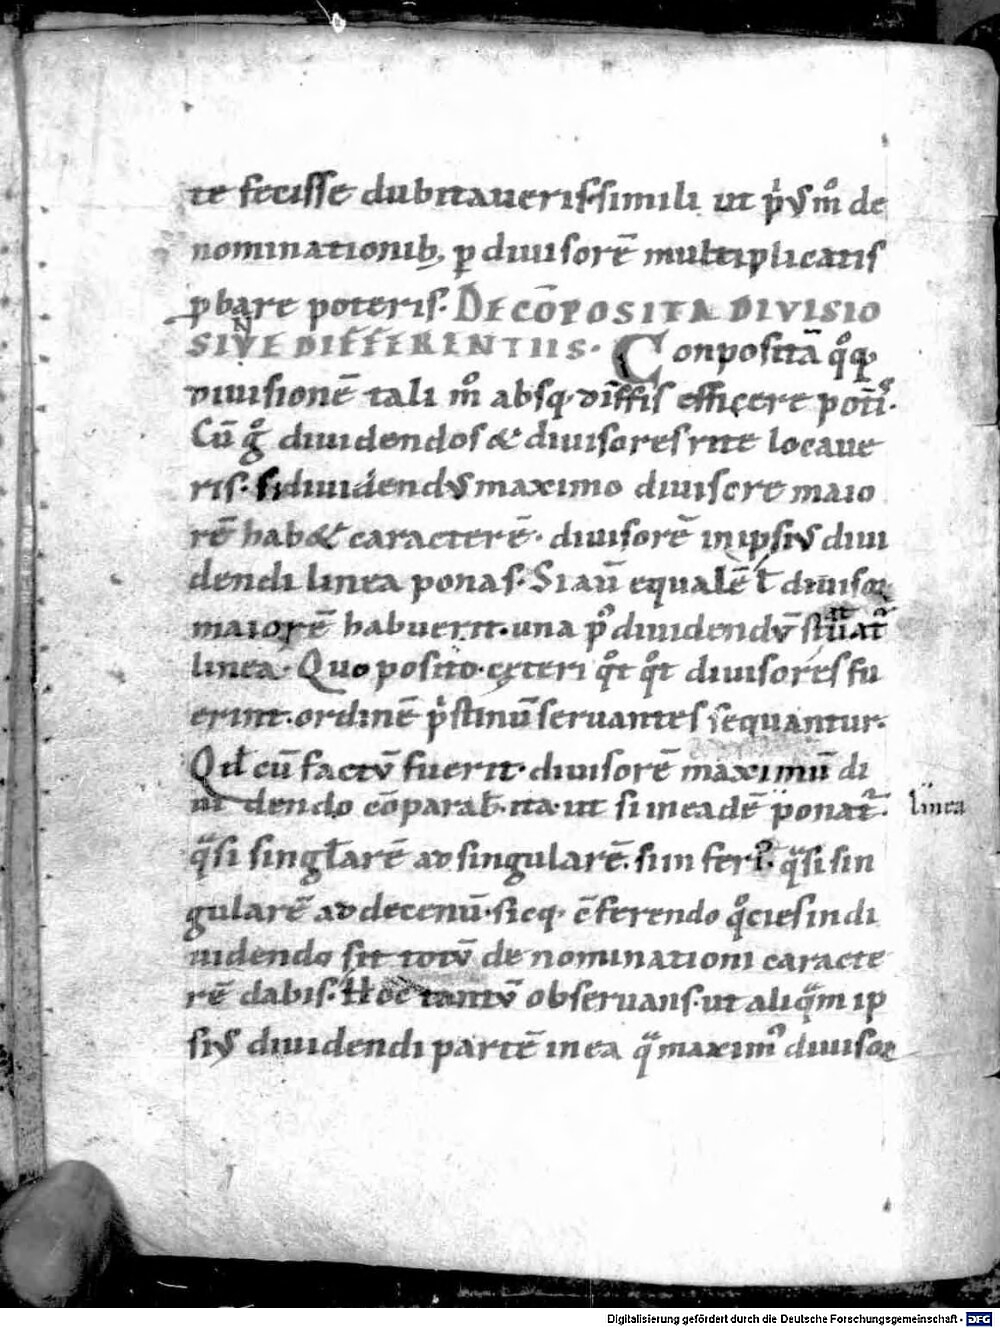 te fecisse dubitaueris. simili ut p̍ꝰ m̊ de
nominationib; ꝑ diuisorē multiplicatis
ꝓbare poteris. DE CŌPOSITA DIVISIO
NE
SIVE DIFFERENTIIS. Conpositā q̊q;
diuisionē tali m̊ absq; diff̄is efficere pot̄.
Cū g̊ diuidendos & diuisores rite locaue
ris. si diuidendꝰ maximo diuisore maio
rē hab& caracterē. diuisorē in ipsiꝰ diui
dendi linea ponas. Si aū equalē ł diuisor
maiorē habuerit. una p̉ diuidendū
linea. Quo posito. cęteri q̊t q̊t diuisores fu
erint. ordinē p̍stinū seruantes sequantur.
Qd̄ cū factū fuerit. diuisorē maximū di
ui dendo cōparab̄. ita. ut si in eadē ponat᷑. linea
q̄si singl̄arē ad singularē. sin feri᷑. q̄si sin
gularē ad decenū. sicq; c̄ferendo q̊ciesindi
uidendo sit totū de nominationi caracte
rē dabis. Hoc tantū obseruans. ut aliq̄m ip
siꝰ diuidendi partē in ea q̄ maxim᷒ diuisor
Digitalisierung gefördert durch die Deutsche Forschungsgemeinschaft - DFG